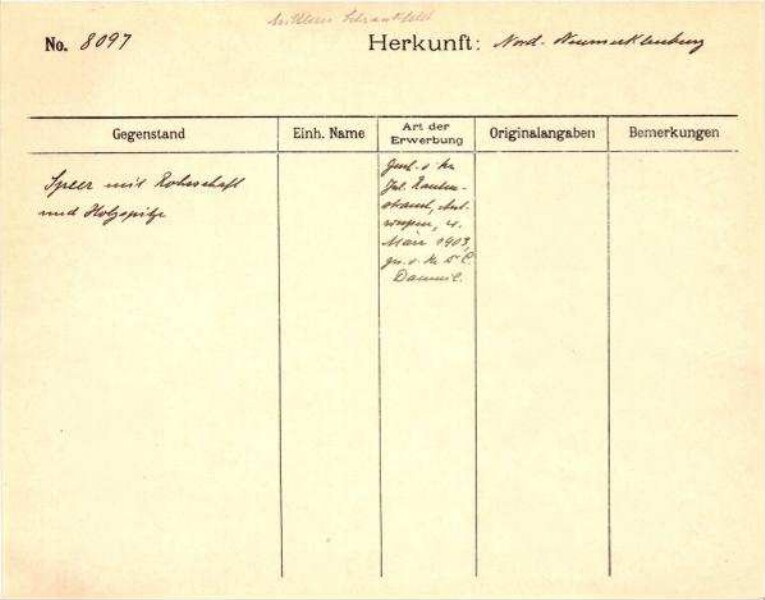 Mittleres Schrankfeld
No. 8097
Herkunft: Nord-Neumecklenburg
Gegenstand
Einh. Name
Art der
Erwerbung
Originalangaben
Bemerkungen
Speer mit Rohrschaft
und Holzspitze
Gesch. v. Hr.
Jul. Rauten-
strauch, Ant-
werpen, 4.
März 1903,
ges. v. Hr. Dr. C.